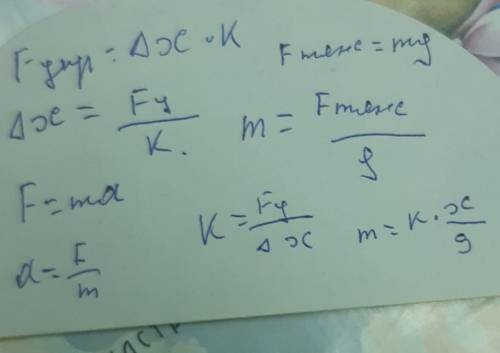 Fупр = Δx · K
Fтяж = mg
Δx = Fу / K.
m = Fтяж / g
F = ma
K = Fу / Δx
m = K · x / g
a = F / m